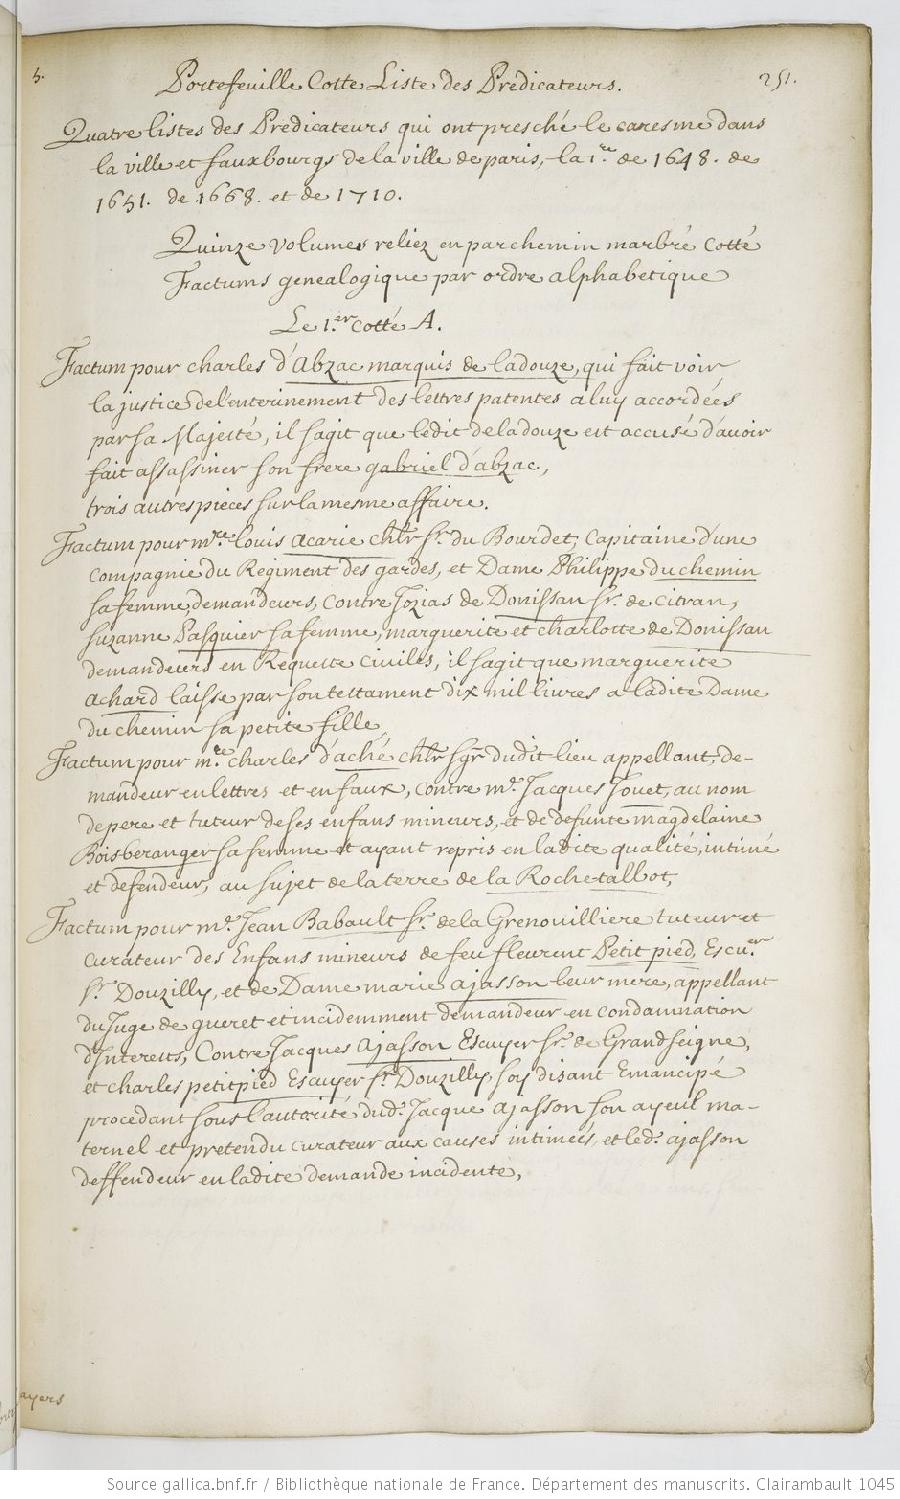 5.
251.
Portefeuille Cotte Liste des Predicateurs.
Quatre listes des Predicateurs qui ont presché le caresme dans
la ville et fauxbourgs de la ville de paris, la 1.re de 1648. de
1651. de 1668. et de 1710.
Quinze volumes reliez en parchemin marbré Cotté
Factums genealogique par ordre alphabetique
Le 1.er Cotté A.
Factum pour charles d'Abzac marquis de ladouze, qui fait voir
la justice de l'enterinement des lettres patentes a luy accordées
par sa Majesté, il sagit que ledit de ladouze est accusé d'avoir
fait assassiner son frere gabriel d'abzac.,
trois autres pieces sur la mesme affaire.
Factum pour m.re louis acarie chlr sr. du Bourdet, Capitaine d'une
compagnie du Regiment des gardes, et Dame Philippe duchemin
sa femme, demandeurs, contre Jozias de Donissan sr. de Citran,
suzanne Pasquier sa femme, marguerite et charlotte de Donissan
demandeurs en Requette Civiles, il sagit que marguerite
achard laisse par son testament dix mil livres a ladite Dame
du chemin sa petite fille,
Factum pour m.re charles d'aché chlr sgr dudit lieu appellant, de-
mandeur en lettres et en faux, contre m.e Jacques Jouet, au nom
de pere et tuteur de ses enfans mineurs, et de defunte magdelaine
Boisberanger sa femme et ayant repris en ladite qualité, intimé
et defendeur, au sujet de la terre de la Rochetalbot,
Factum pour m.e Jean Babault sr. de la Grenouilliere tuteur et
curateur des Enfans mineurs de feu fleurent Petit pied, Escu.er
sr. Douzilly, et de Dame marie ajasson leur mere, appellant
du Juge de gueret et incidemment demandeur en condamnation
d'Interests, Contre Jacques ajasson Escuyer sr. de Grandseigne,
et charles petitpied Escuyer sr. Douzilly, soy disant Emancipé
procedant sous l'autorité dud. Jacque ajasson son ayeul ma-
ternel et pretendu curateur aux causes intimées, et led. ajasson
deffendeur en ladite demande incidente,
ayers
Source gallica.bnf.fr / Bibliothèque nationale de France. Département des manuscrits. Clairambault 1045